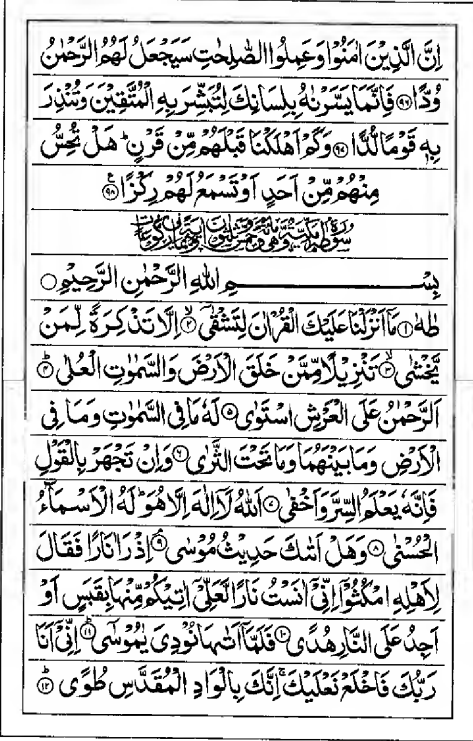 اِنَّ الَّذِيْنَ اٰمَنُوْا وَعَمِلُوا الصّٰلِحٰتِ سَيَجْعَلُ لَهُمُ الرَّحْمٰنُ
وُدًّا ۝۹۶ فَاِنَّمَا يَسَّرْنٰهُ بِلِسَانِكَ لِتُبَشِّرَ بِهِ الْمُتَّقِيْنَ وَتُنْذِرَ
بِهٖ قَوْمًا لُّدًّا ۝۹۷ وَكَمْ اَهْلَكْنَا قَبْلَهُمْ مِّنْ قَرْنٍ ؕ هَلْ تُحِسُّ
مِنْهُمْ مِّنْ اَحَدٍ اَوْ تَسْمَعُ لَهُمْ رِكْزًا ۝۹۸
بِسْمِ اللهِ الرَّحْمٰنِ الرَّحِيْمِ ۝
طٰهٰ ۝۱ مَاۤ اَنْزَلْنَا عَلَيْكَ الْقُرْاٰنَ لِتَشْقٰۤى ۝۲ اِلَّا تَذْكِرَةً لِّمَنْ
يَّخْشٰى ۝۳ تَنْزِيْلًا مِّمَّنْ خَلَقَ الْاَرْضَ وَالسَّمٰوٰتِ الْعُلٰى ۝۴
اَلرَّحْمٰنُ عَلَى الْعَرْشِ اسْتَوٰى ۝۵ لَهٗ مَا فِى السَّمٰوٰتِ وَمَا فِى
الْاَرْضِ وَمَا بَيْنَهُمَا وَمَا تَحْتَ الثَّرٰى ۝۶ وَاِنْ تَجْهَرْ بِالْقَوْلِ
فَاِنَّهٗ يَعْلَمُ السِّرَّ وَاَخْفٰى ۝۷ اَللهُ لَاۤ اِلٰهَ اِلَّا هُوَ ؕ لَهُ الْاَسْمَآءُ
الْحُسْنٰى ۝۸ وَهَلْ اَتٰىكَ حَدِيْثُ مُوْسٰى ۝۹ اِذْ رَاٰ نَارًا فَقَالَ
لِاَهْلِهِ امْكُثُوْۤا اِنِّىْۤ اٰنَسْتُ نَارًا لَّعَلِّىْۤ اٰتِيْكُمْ مِّنْهَا بِقَبَسٍ اَوْ
اَجِدُ عَلَى النَّارِ هُدًى ۝۱۰ فَلَمَّاۤ اَتٰىهَا نُوْدِىَ يٰمُوْسٰى ۝۱۱ اِنِّىْۤ اَنَا
رَبُّكَ فَاخْلَعْ نَعْلَيْكَ ۚ اِنَّكَ بِالْوَادِ الْمُقَدَّسِ طُوًى ۝۱۲